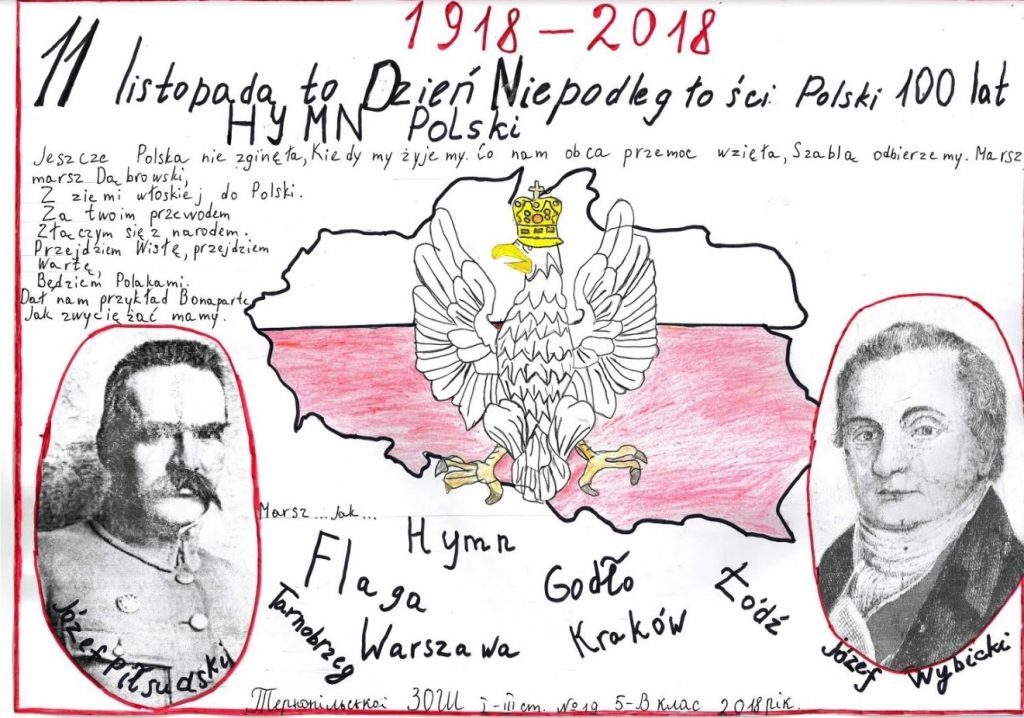 1918-2018
11 listopada to Dzień Niepodległości Polski 100 lat
HYMN Polski
Jeszcze Polska nie zginęła, Kiedy my żyjemy. Co nam obca przemoc wzięła, Szablą odbierzemy. Marsz
marsz Dąbrowski,
Z ziemi włoskiej do Polski.
Za twoim przewodem
Złączym się z narodem.
Przejdziem Wisłę, przejdziem
Wartę,
Będziem Polakami.
Dał nam przykład Bonaparte
Jak zwyciężać mamy.
Marsz... Jak...
Hymn
Flaga
Godło
Łódź
Tarnobrzeg
Warszawa
Kraków
Józef Piłsudski
Józef Wybicki
Тернопільської ЗОШ І-ІІІ ст. №19 5-В клас 2018 рік.